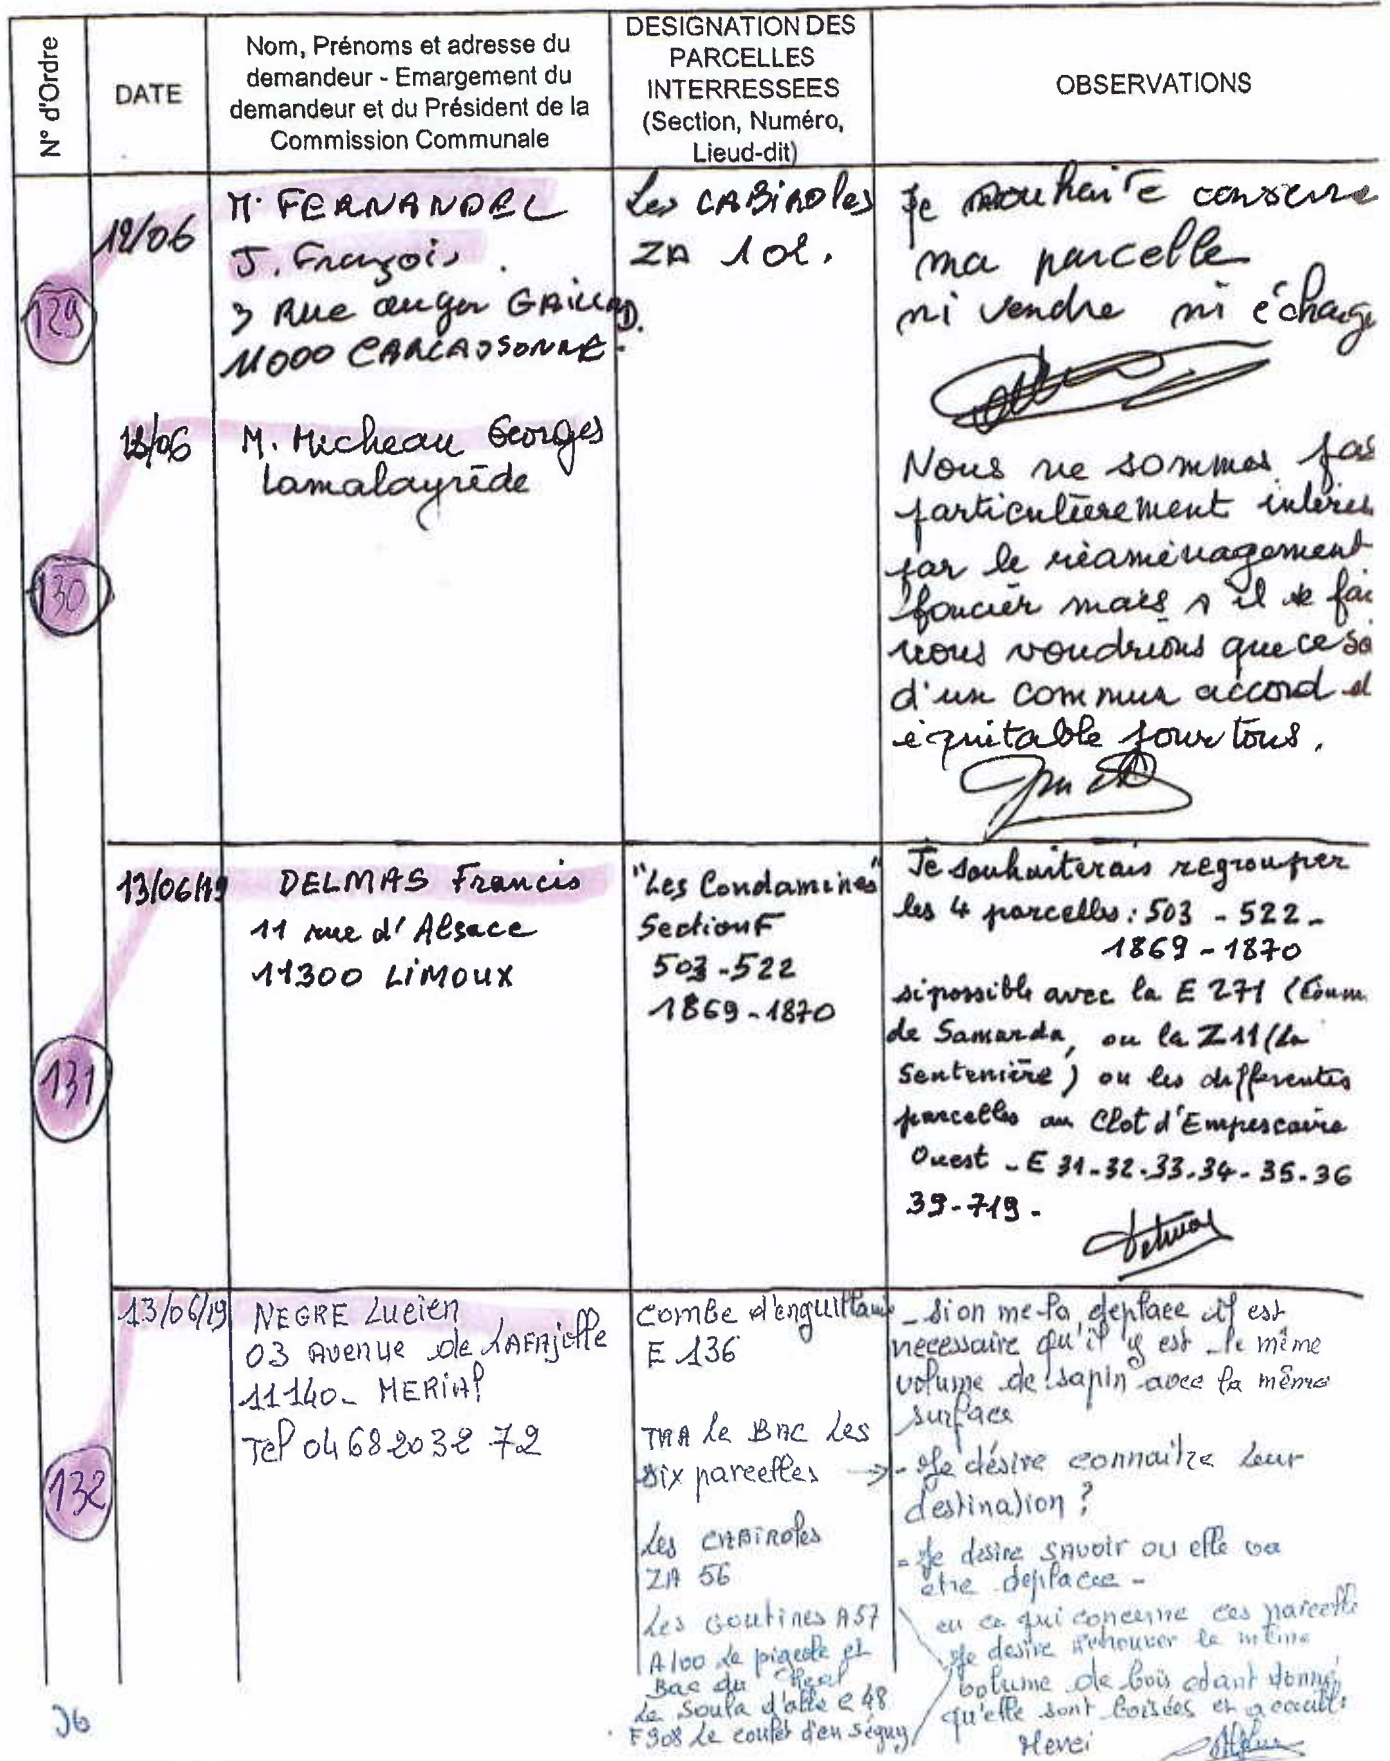 N° d'Ordre
DATE
Nom, Prénoms et adresse du
demandeur - Emargement du
demandeur et du Président de la
Commission Communale
DESIGNATION DES
PARCELLES
INTERRESSEES
(Section, Numéro,
Lieud-dit)
OBSERVATIONS
129
12/06
M. FERNANDEL
J. François
3 Rue auger GAILLARD.
11000 CARCASSONNE.
Les CABIROLES
ZA 102.
Je souhaite conserve
ma parcelle
ni vendre ni échange
130
12/06
M. Micheau Georges
Lamalayrède
Nous ne sommes pas
particulièrement intéres
par le réaménagement
foncier mais s'il se fai
nous voudrions que ce soi
d'un commun accord et
équitable pour tous.
131
13/06/19
DELMAS Francis
11 rue d'Alsace
11300 LIMOUX
"Les Condamines"
Section F
503-522
1869-1870
Je souhaiterais regrouper
les 4 parcelles : 503 - 522 -
1869 - 1870
si possible avec la E 271 (Coum
de Samarda, ou la Z11 (La
Sentenière) ou les differentes
parcelles au Clot d'Empescaire
Ouest - E 31-32-33-34-35-36
39-719-
Delmas
132
13/06/19
NEGRE Lucien
03 Avenue de LAFAJolle
11140 - MERIAl
Tel 04 68 20 32 72
Combe d'enguillaume
E 136
le BAC Les
six parcelles →
Les CABIROLES
ZA 56
Les Goutines A57
A100 Le et
Bac du
Le Soula d'alle C 48
F908 Le coulet d'en séguy
- si on me la deplace il est
necessaire qu'il y est le même
volume de sapin avec la même
surface
- Je désire connaitre leur
destination ?
- Je desire savoir ou elle va
etre deplacée -
en ce qui concerne ces parcelle
Je desire retrouver le même
volume de bois etant donné
qu'elle sont boisées et
Merci
36